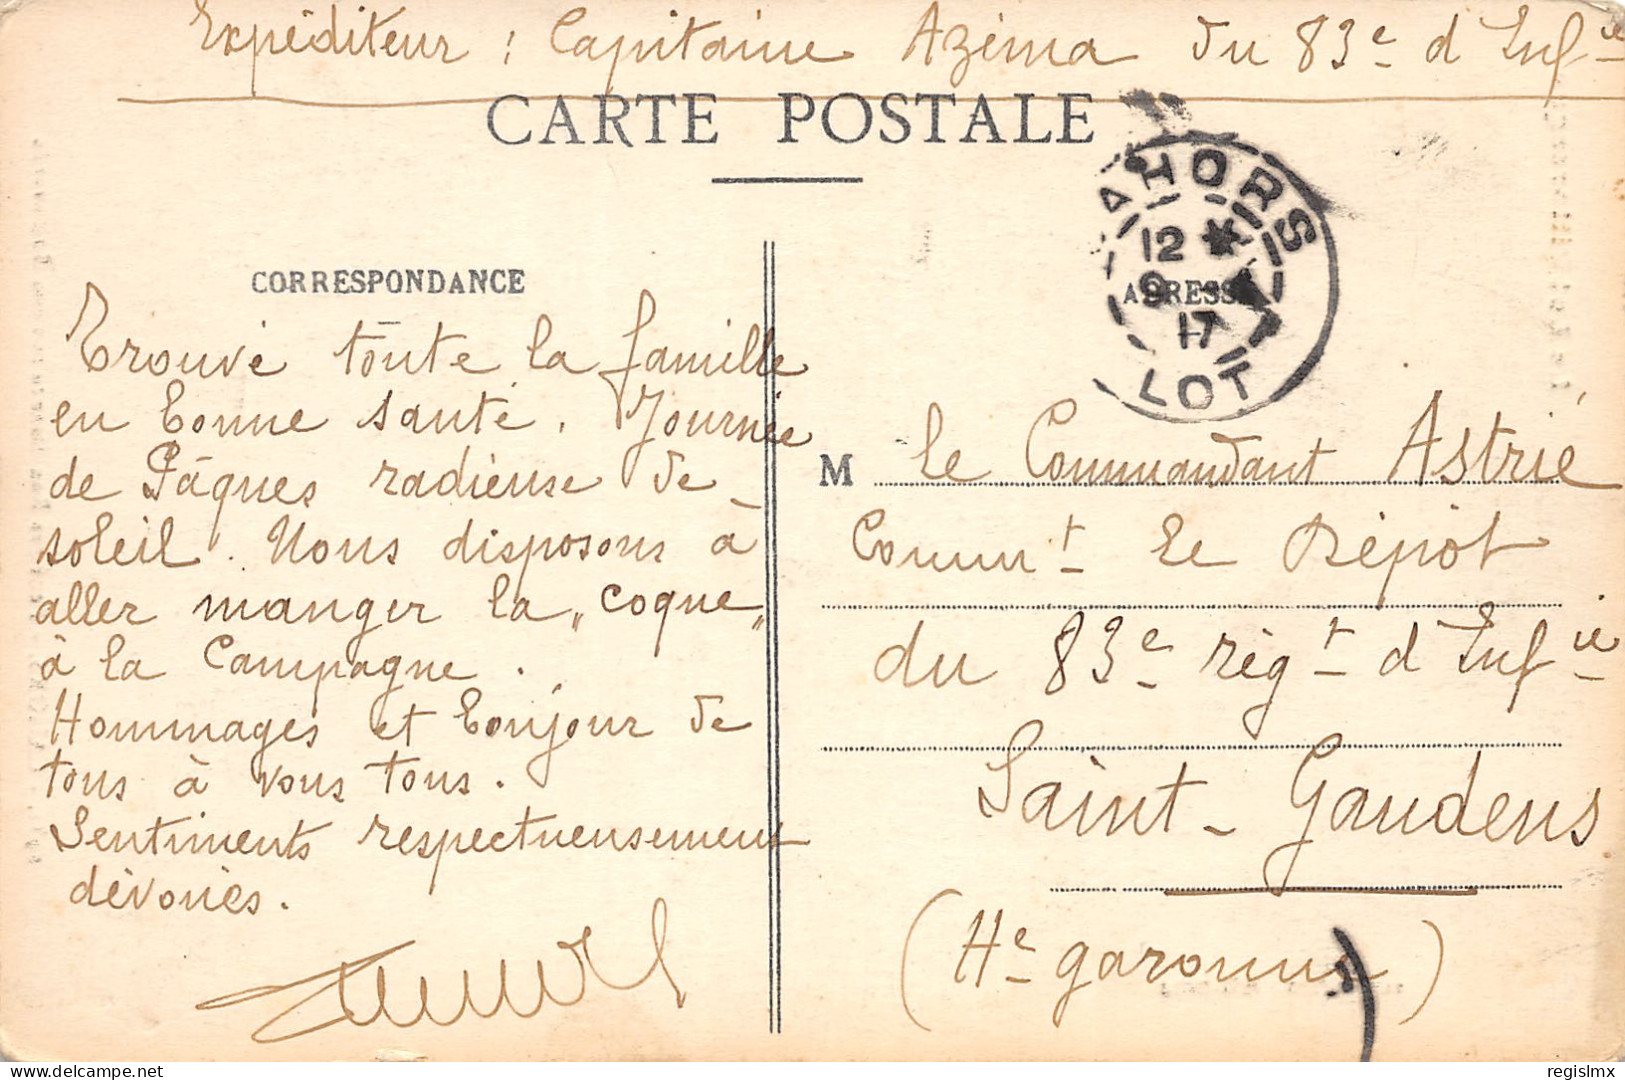 Expéditeur : Capitaine Azéma du 83e d'Infie
CARTE POSTALE
CAHORS
12 *
9 - 4
17
LOT
CORRESPONDANCE
ADRESSE
Trouvé toute la famille
en bonne santé. Journée
de Pâques radieuse de
soleil. Nous disposons à
aller manger la "coque"
à la Campagne.
Hommages et bonjour de
tous à vous tous.
Sentiments respectueusement
dévoués.
M le Commandant Astrié
Commt le Dépôt
du 83e régt d'Infie
Saint-Gaudens
(Hte garonne)
delcampe.net
regislmx